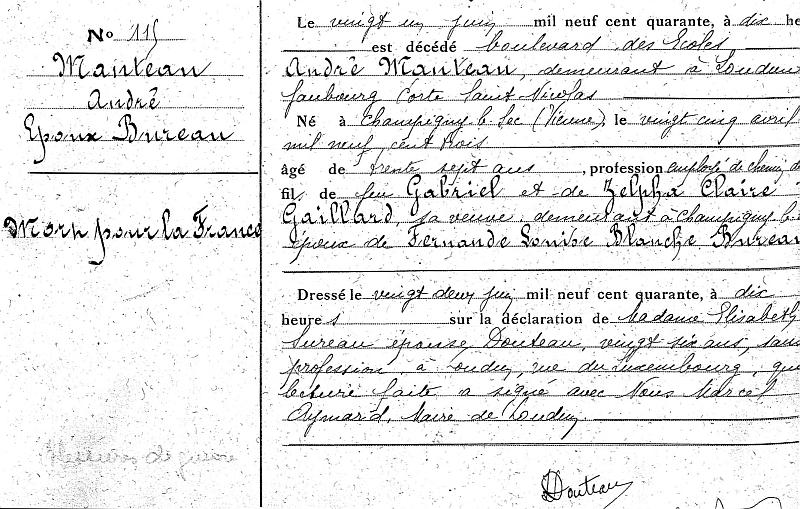 No 115
Manteau
André
Epoux Bureau
Mort pour la France
Blessures de guerre
Le vingt un juin mil neuf cent quarante, à dix he
est décédé boulevard des Ecoles
André Manteau, demeurant à Loudun
faubourg Porte Saint-Nicolas
Né à Champigny le Sec (Vienne), le vingt cinq avril
mil neuf cent trois
âgé de trente sept ans, profession employé de chemin de
fil de feu Gabriel et de Zelpha Claire
Gaillard, sa veuve demeurant à Champigny le
époux de Fernande Louise Blanche Bureau
Dressé le vingt deux juin mil neuf cent quarante, à dix
heure s sur la déclaration de Madame Elisabeth
Bureau épouse Douteau, vingt six ans, sans
profession, à Loudun, rue du Luxembourg, qui
lecture faite a signé avec Nous Marcel
Aymard, Maire de Loudun
Douteau